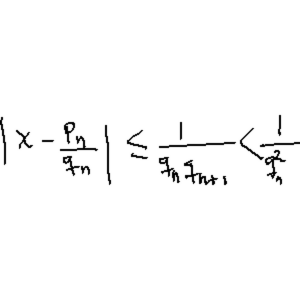 |x - p_n/q_n| ≤ 1/(q_n q_{n+1}) < 1/q_n^2